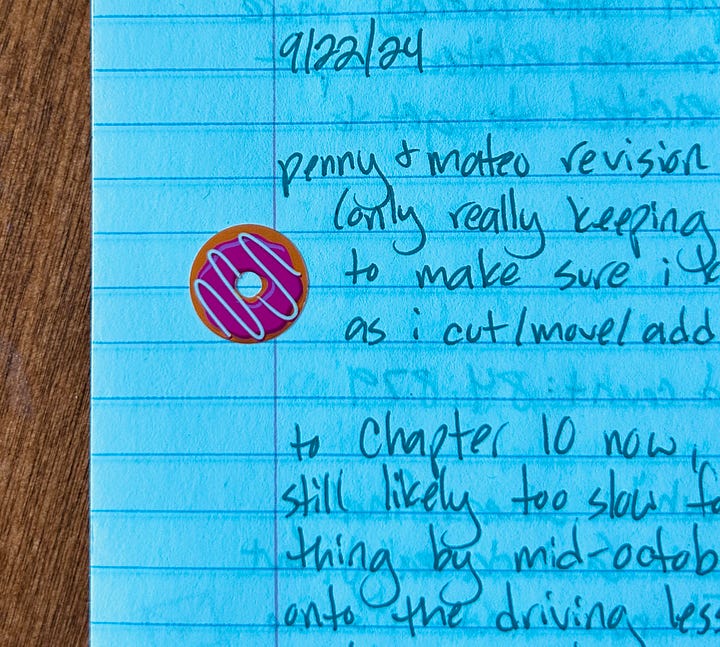 9/22/24
penny & mateo revision
(only really keeping
to make sure i
as i cut/move/add
to chapter 10 now,
still likely too slow
thing by mid-octob
onto the driving less